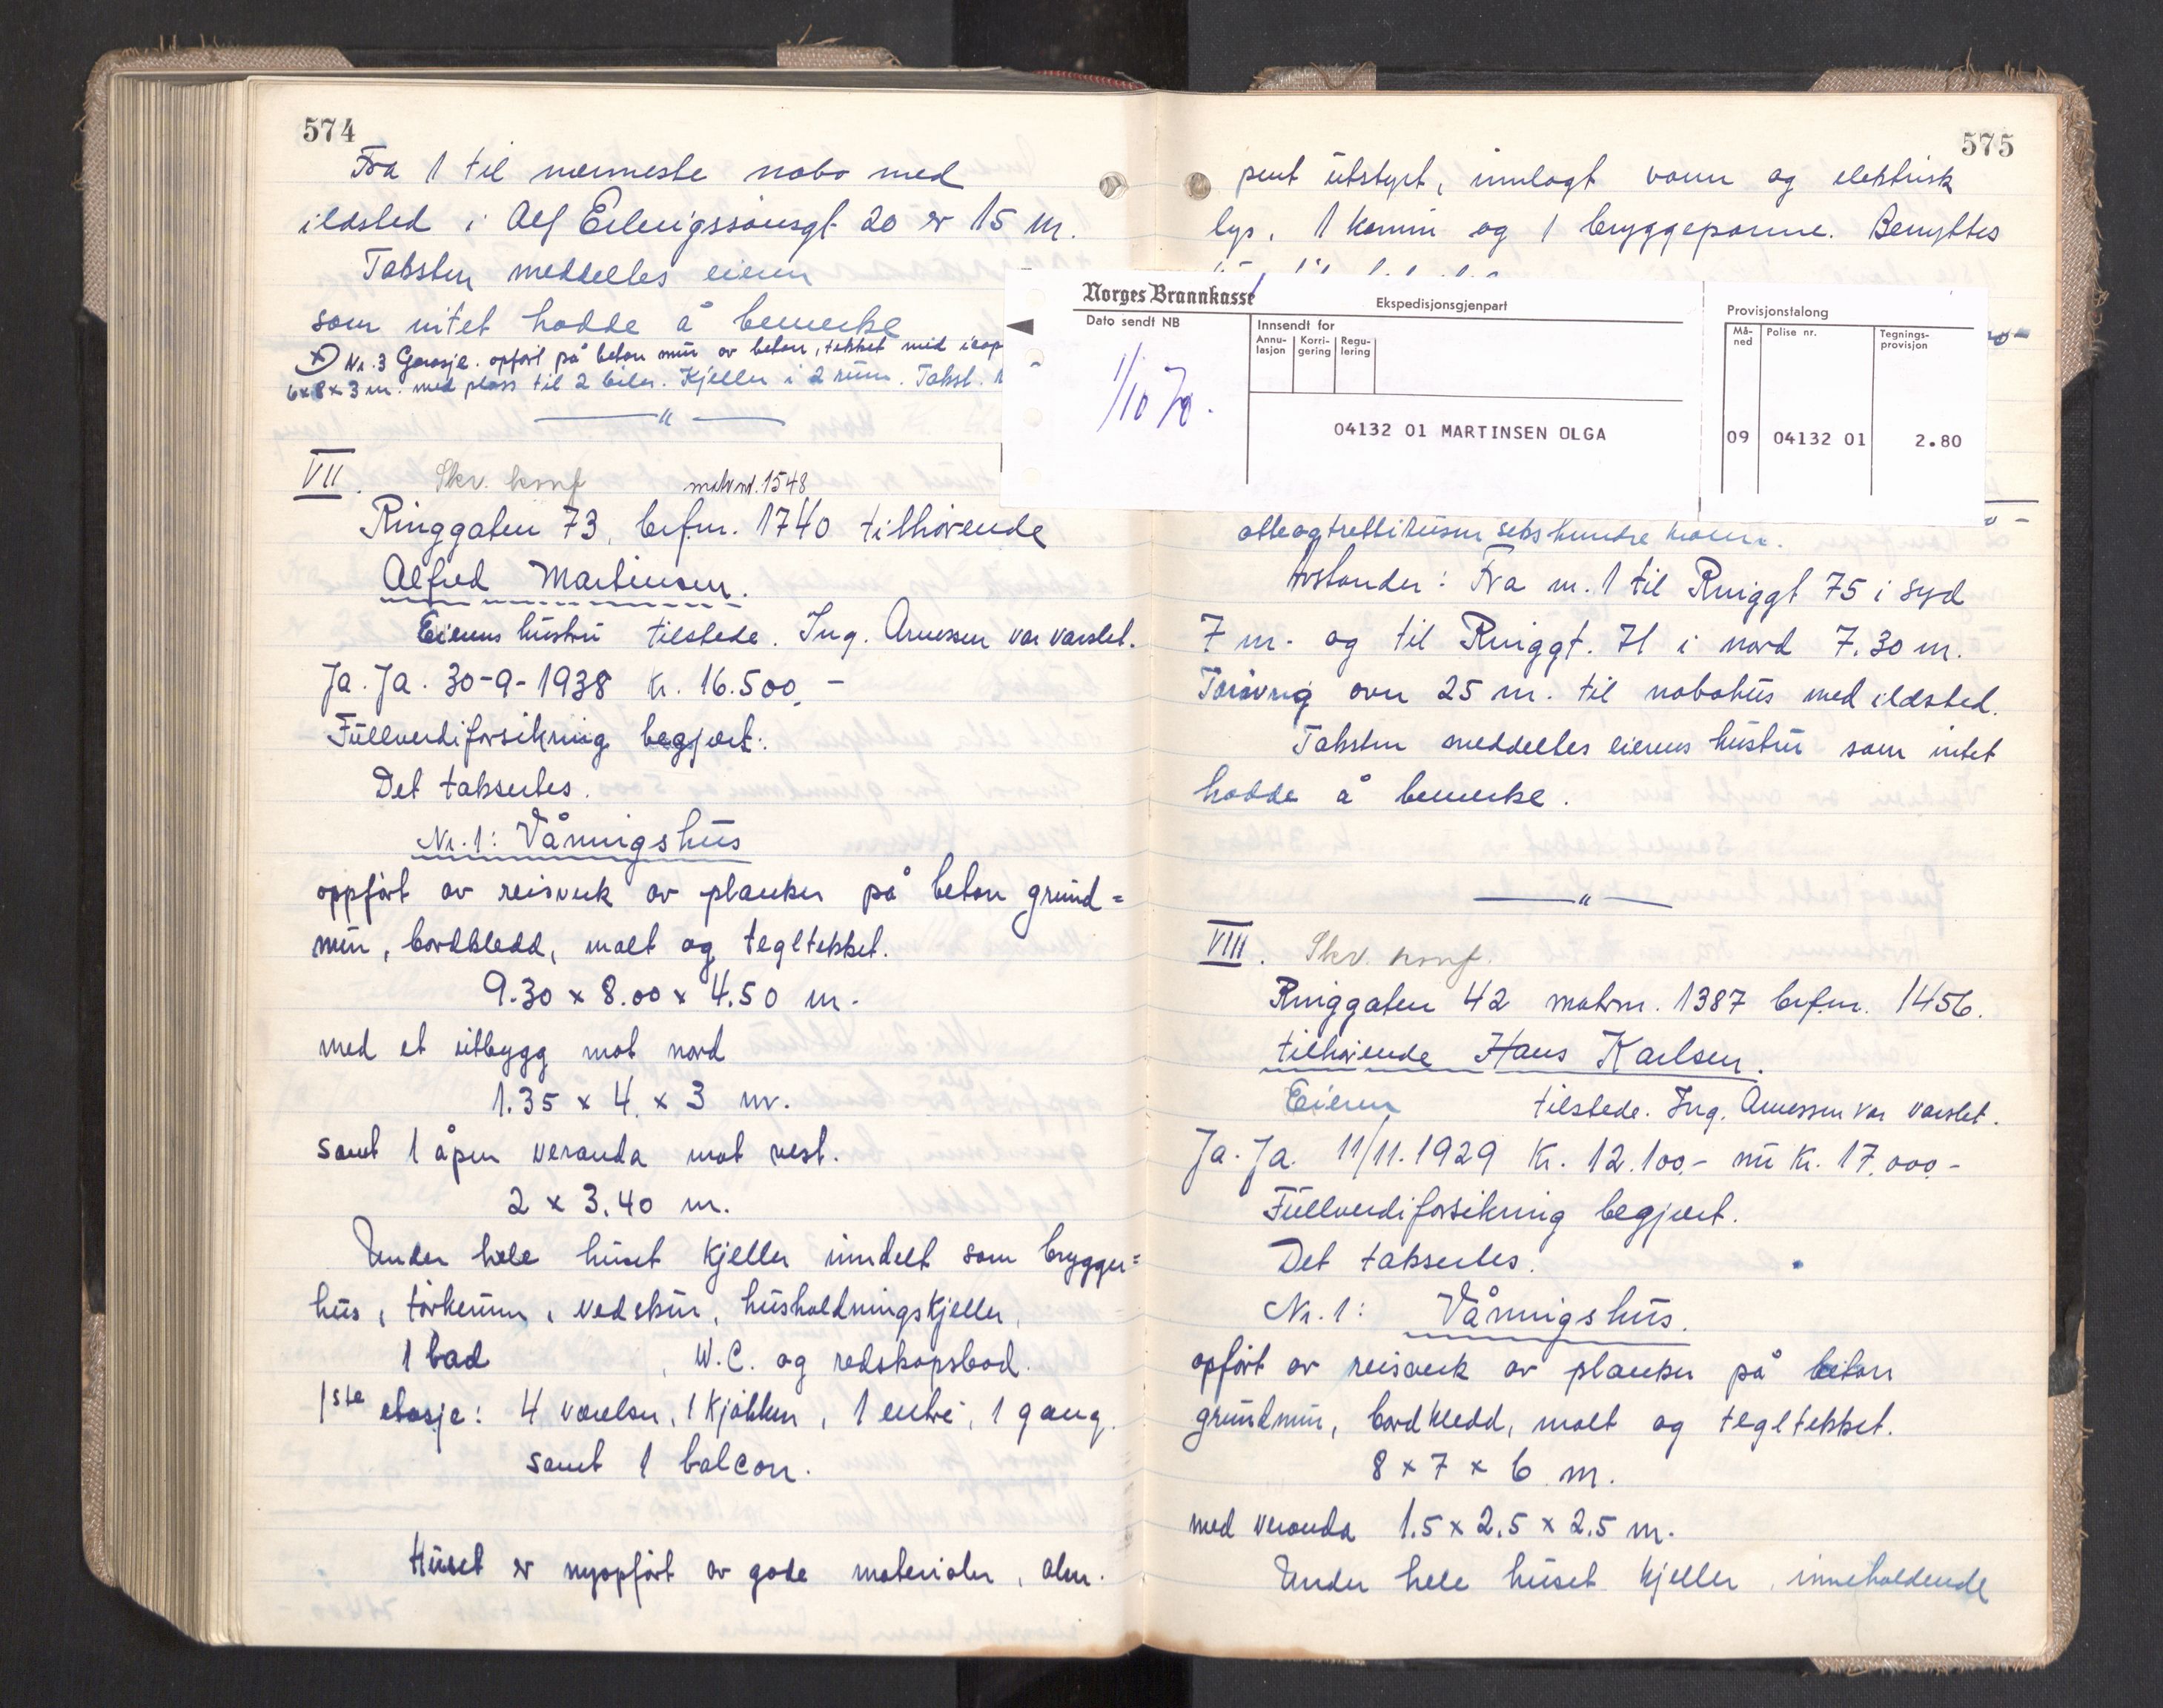 574
Fra 1 til nærmeste nabo med
ildsted i Alf Erlingssønsgt 20 er 15 m.
Taksten meddeltes eieren
som intet hadde å bemerke
x) Nr. 3 Garasje. opført på beton mur av beton, tekket med
6x8x3 m. med plass til 2 biler. Kjeller i 2 rum. Takst.
— " —
VII. Skv. konf matr.nr. 1548
Ringgaten 73, brf.nr. 1740 tilhørende
Alfred Martinsen.
Eierens hustru tilstede. Ing. Arnessen var varslet.
Ja. Ja. 30-9-1938 kr. 16.500,-
Fullverdiforsikring begjært.
Det takseertes.
Nr. 1: Våningshus
oppført av reisverk av planker på beton grund=
mur, bordkledd, malt og tegltekket.
9.30 x 8.00 x 4.50 m.
med et utbygg mot nord
1.35 x 4. x 3 m.
samt 1 åpen veranda mot vest.
2 x 3.40 m.
Under hele huset kjeller inndelt som brygger=
hus, tørkerum, vedskur, husholdningskjeller,
1 bad , W.C. og redskapsbod.
1ste etasje: 4 værelser, 1 kjøkken, 1 entré, 1 gang.
samt 1 balcon.
Huset er nyopført av gode materialer, alm.
575
pent utstyrt, innlagt vann og elektrisk
lys. 1 kamin og 1 bryggepanne. Benyttes
Norges Brannkasse
Ekspedisjonsgjenpart
Provisjonstalong
Dato sendt NB
Innsendt for
Annulasjon
Korrigering
Regulering
Måned
Polise nr.
Tegningsprovisjon
1/10 70.
04132 01 MARTINSEN OLGA
09 04132 01 2.80
åtteogtrettitusen sekshundre kroner.
Avstander: Fra nr. 1 til Ringgt 75 i syd
7 m. og til Ringgt. 71 i nord 7.30 m.
Forøvrig over 25 m. til nabohus med ildsted.
Taksten meddeltes eierens hustru som intet
hadde å bemerke.
— " —
VIII. Skv. konf.
Ringgaten 42 matr.nr. 1387 brf.nr. 1456.
tilhørende Hans Karlsen.
Eieren tilstede. Ing. Arnessen var varslet.
Ja. Ja. 11/11.1929 Kr. 12.100.- nu kr. 17.000.-
Fullverdiforsikring begjært.
Det takseertes.
Nr. 1: Våningshus.
opført av reisverk av planker på beton
grundmur, bordkledd, malt og tegltekket.
8 x 7 x 6 m.
med veranda 1.5 x 2.5 x 2.5 m.
Under hele huset kjeller, inneholdende